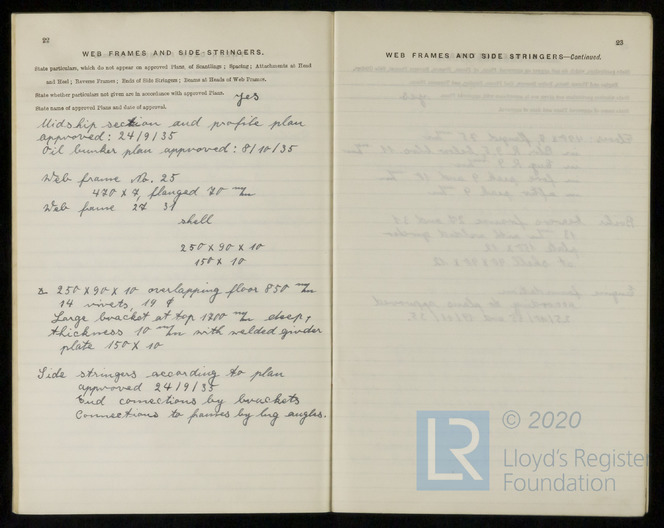 22
WEB FRAMES AND SIDE-STRINGERS.
State particulars, which do not appear on approved Plans, of Scantlings; Spacing; Attachments at Head
and Heel; Reverse Frames; Ends of Side Stringers; Beams at Heads of Web Frames.
State whether particulars not given are in accordance with approved Plans.
yes
State name of approved Plans and date of approval.
Midship section and profile plan
approved: 24/9/35
Oil bunker plan approved: 8/10/35
Web frame No. 25
470 x 7, flanged 70 m/m
Web frame 27 31
shell
250 x 90 x 10
150 x 10
250 x 90 x 10 overlapping floor 850 m/m
14 rivets, 19
Large bracket at top 1200 m/m deep,
thickness 10 m/m with welded girder
plate 150 x 10
Side stringers according to plan
approved 24/9/35
End connections by brackets
Connections to frames by lug angles.
23
WEB FRAMES AND SIDE STRINGERS—Continued.
LR
© 2020
Lloyd's Register
Foundation